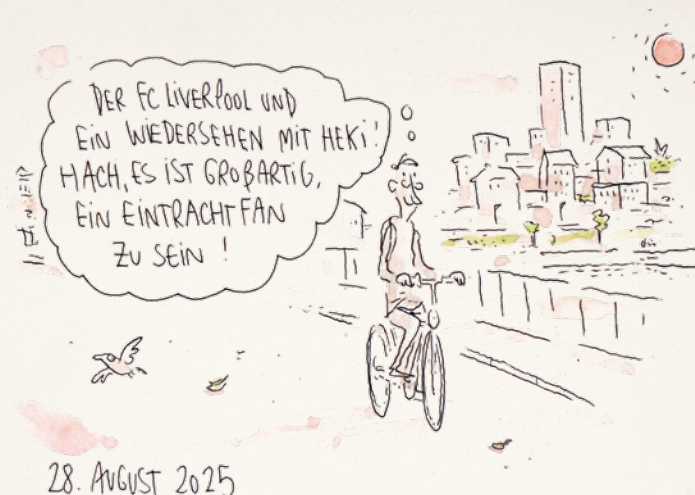 DER FC LIVERPOOL UND
EIN WIEDERSEHEN MIT HEKI!
HACH, ES IST GROßARTIG,
EIN EINTRACHT FAN
ZU SEIN!
28. AUGUST 2025